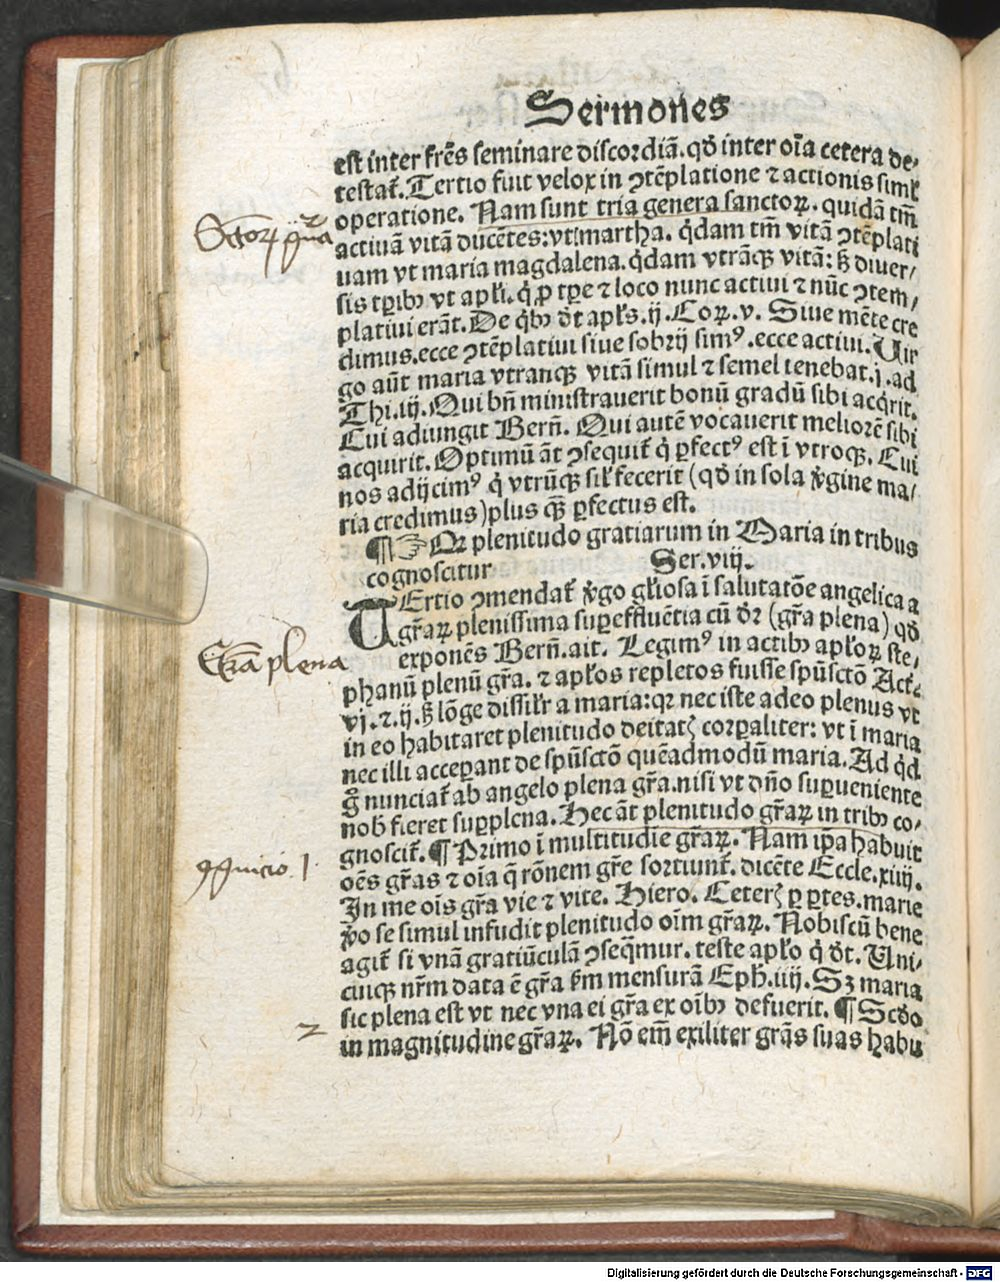 Sermones
est inter fr̄es seminare discordiā. qd̄ inter oīa cetera de⸗
testat̄. Tertio fuit velox in ꝯtēplatione ⁊ actionis siml̄
operatione. Nam sunt tria genera sanctoꝝ. quidā tm̄
Sctorꝫ gn̄a
actiuā vitā ducētes: vt martha. q̇dam tm̄ vitā ꝯtēplati
uam vt maria magdalena. q̇dam vtrāqꝫ vitā: sꝫ diuer⸗
sis tꝑibꝰ vt apl̄i. q̇ ꝓ tꝑe ⁊ loco nunc actiui ⁊ nūc ꝯtem⸗
platiui erāt. De q̇bꝰ dt̄ apl̄s. ij. Coꝝ. v. Siue mēte exce
dimus. ecce ꝯtēplatiui siue sobrij simꝰ. ecce actiui. Uir
go aūt maria vtranqꝫ vitā simul ⁊ semel tenebat. j. ad
Thi. iij. Qui bn̄ ministrauerit bonū gradū sibi acq̇rit.
Cui adiungit Bern̄. Qui autē vocauerit meliorē sibi
acquirit. Optimū āt ꝯsequit̄ q̇ ꝑfectꝰ est ī vtroqꝫ. Cui
nos adijcimꝰ q̇ vtrūqꝫ sil̄ fecerit (qd̄ in sola v̇gine ma⸗
ria credimus) plus qꝫ̄ ꝑfectus est.
¶ ☞ Qꝛ plenitudo gratiarum in Maria in tribus
cognoscitur Ser. viij.
TErtio ꝯmendat̄ v̇go gl̄iosa ī salutatōe angelica a
gr̄aꝝ plenissima suꝑeffluētia cū dr̄ (gr̄a plena) qd̄
exponēs Bern̄. ait. Legimꝰ in actibꝰ apl̄oꝝ ste⸗
Gr̄a plena
phanū plenū gr̄a. ⁊ apl̄os repletos fuisse spūsctō Act̄.
vj. ⁊. ij. sꝫ lōge dissil̄r a maria: qꝛ nec iste adeo plenus vt
in eo habitaret plenitudo deitatꝭ corꝑaliter: vt ī maria
nec illi acceꝑant de spūsctō quēadmodū maria. Ad q̇d
g̊ nunciat̄ ab angelo plena gr̄a. nisi vt dn̄o suꝑueniente
nob̄ fieret suꝑplena. Hec āt plenitudo gr̄aꝝ in tribꝰ co⸗
gnoscit̄. ¶ Primo ī multitudīe gr̄aꝝ. Nam ip̄a habuit
oēs gr̄as ⁊ oīa q̄ rōnem gr̄e sortiunt̄. dicēte Eccle. xiiij.
In me oīs gr̄a vie ⁊ vite. Hiero. Ceterꝭ ꝑ ꝑtes. marie
v̊o se simul infudit plenitudo oīm gr̄aꝝ. Nobiscū bene
agit̄ si vnā gratiūculā ꝯseq̄mur. teste apl̄o q̇ dt̄. Uni⸗
cuiqꝫ nr̄m data ē gr̄a ẜm mensurā Eph̄. iiij. Sꝫ maria
sic plena est vt nec vna ei gr̄a ex oībꝰ defuerit. ¶ Scd̄o
2
in magnitudine gr̄aꝝ. Nō em̄ exiliter gr̄as suas habu
Digitalisierung gefördert durch die Deutsche Forschungsgemeinschaft - DFG